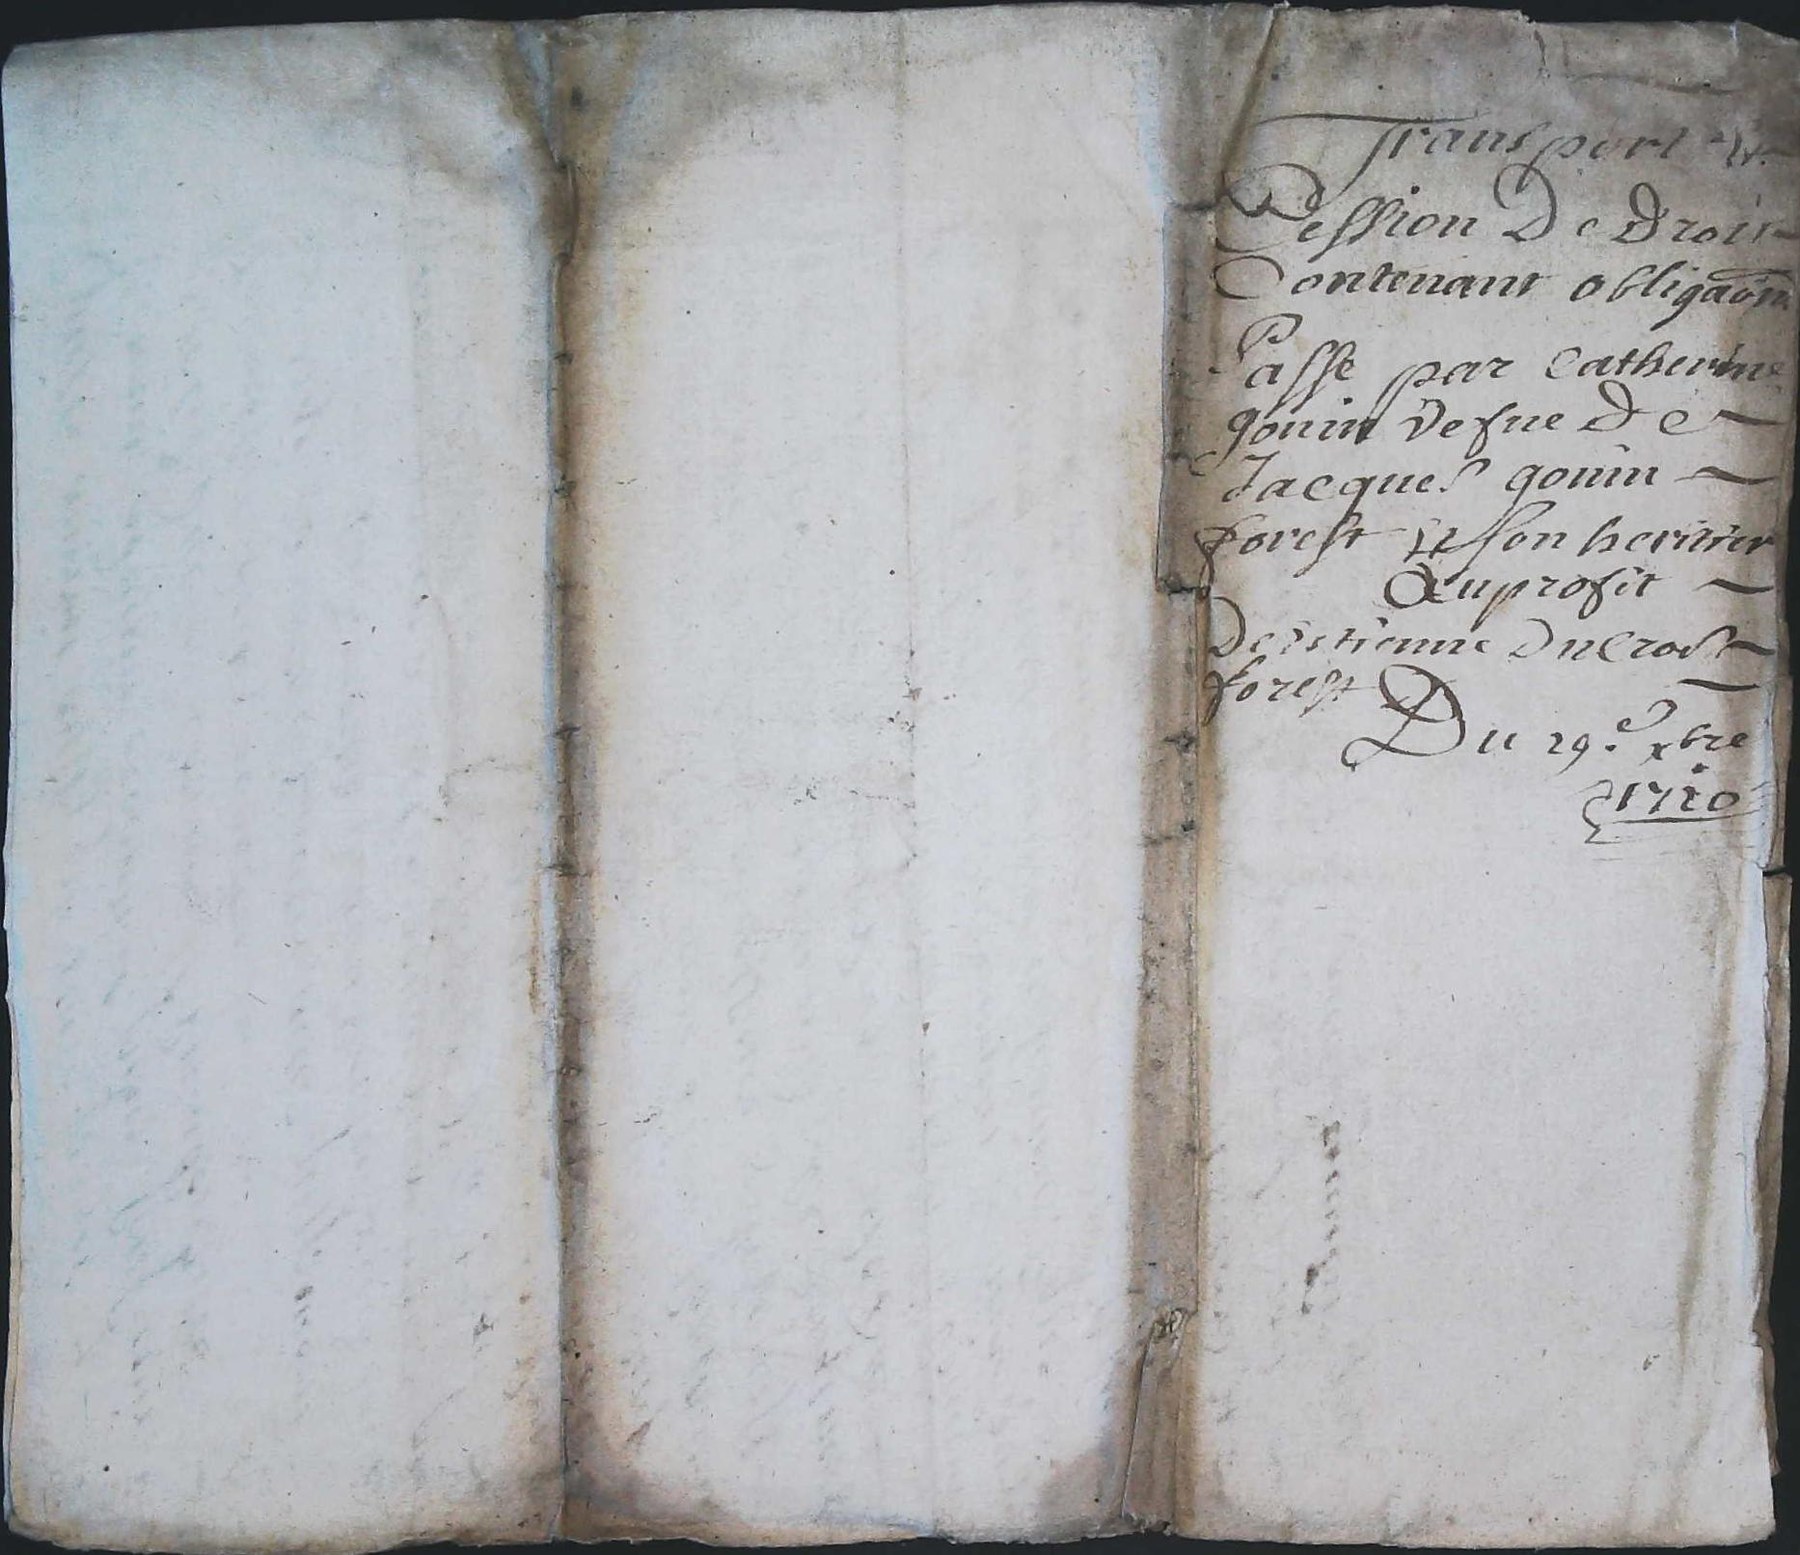 Transport Et
Cession De Droit
Contenant obligaõn
Passe par Catherine
gouin Vefue De
Jacques gouin
forest Et son heritier
Au profit
De Estienne Ducrost
forest
Du 29.e xbre
1720